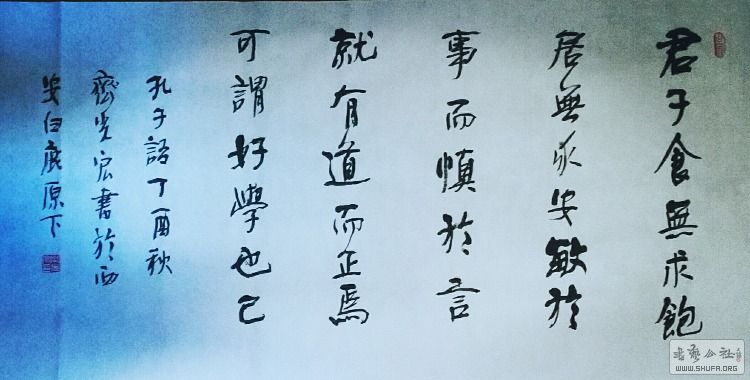 君子食無求飽
居無求安敏於
事而慎於言
就有道而正焉
可謂好學也已
孔子語丁酉秋
齊光宏書於西
安白鹿原下
书艺公社
WWW.SHUFA.ORG